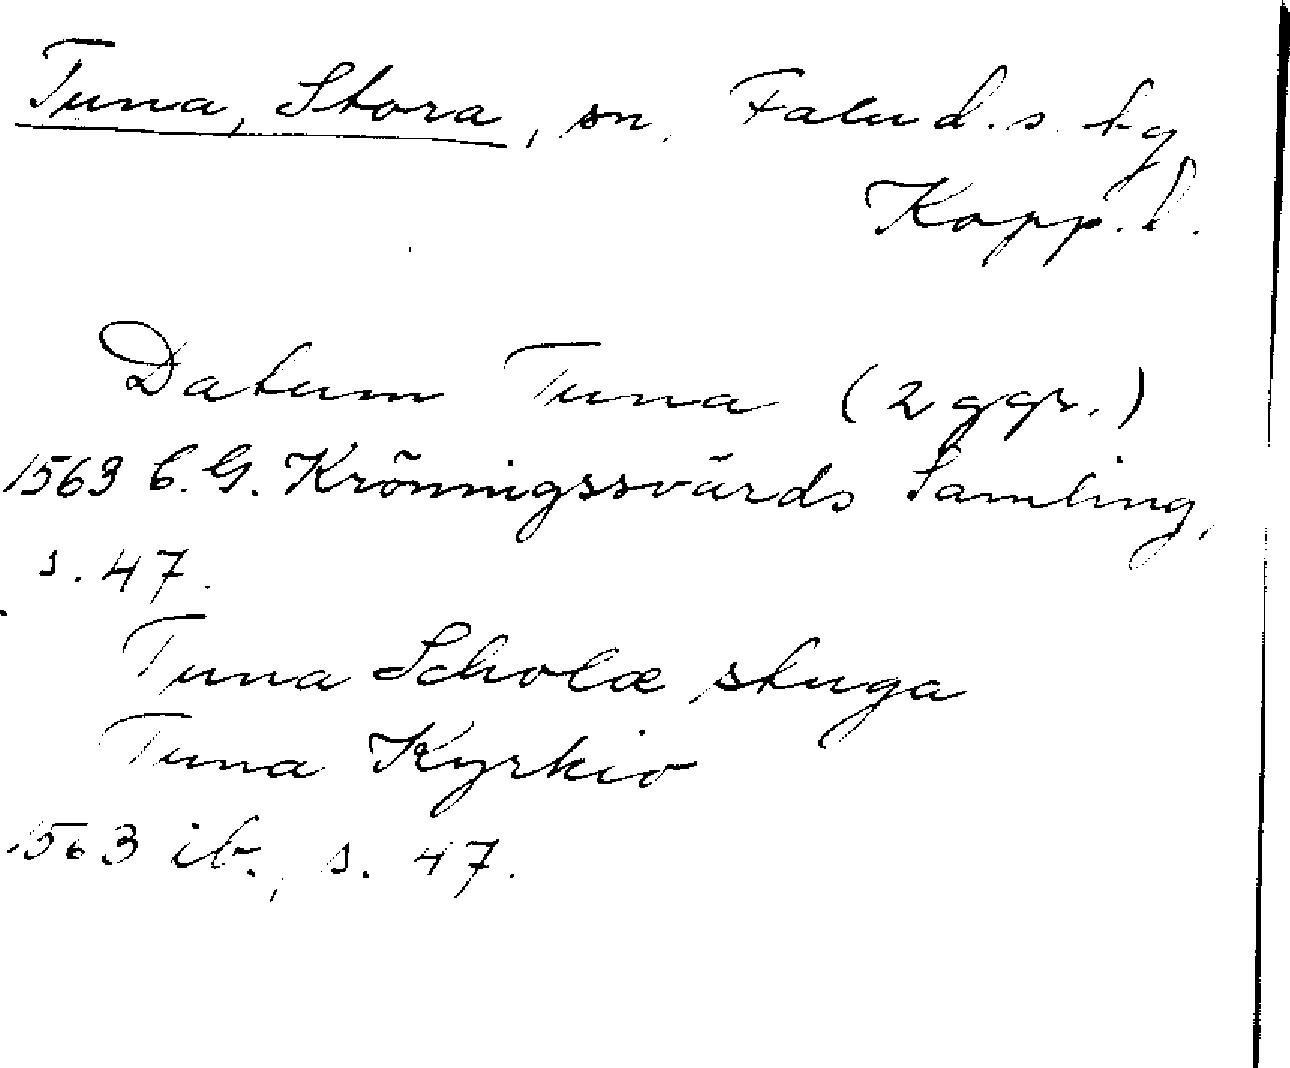 Tuna, Stora, sn. Falu d. s. hg
Kopp. l.
Datum Tuna (2 ggr.)
1563 C. G. Krönningssvärds Samling,
s. 47.
Tuna Scholæ stuga
Tuna Kyrkio
1563 ib., s. 47.